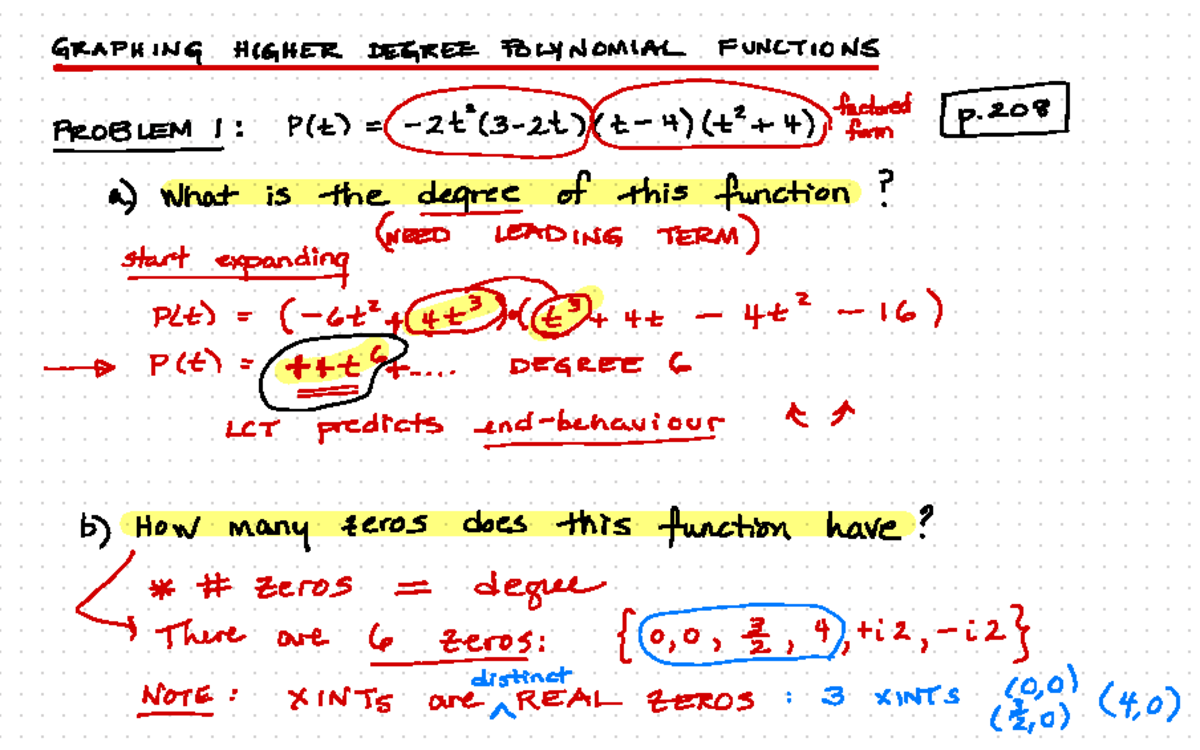 GRAPHING HIGHER DEGREE POLYNOMIAL FUNCTIONS
PROBLEM 1: P(t) = -2t²(3-2t)(t-4)(t²+4) factored form p.208
a) What is the degree of this function?
(NEED LEADING TERM)
start expanding
P(t) = (-6t² + 4t³)·(t³ + 4t - 4t² - 16)
→ P(t) = +4t⁶ + .... DEGREE 6
LCT predicts end-behaviour ↖ ↗
b) How many zeros does this function have?
* # zeros = degree
There are 6 zeros: {0,0, 3/2, 4, +i2, -i2}
NOTE: XINTS are ^distinct REAL ZEROS: 3 XINTS (0,0) (3/2,0) (4,0)